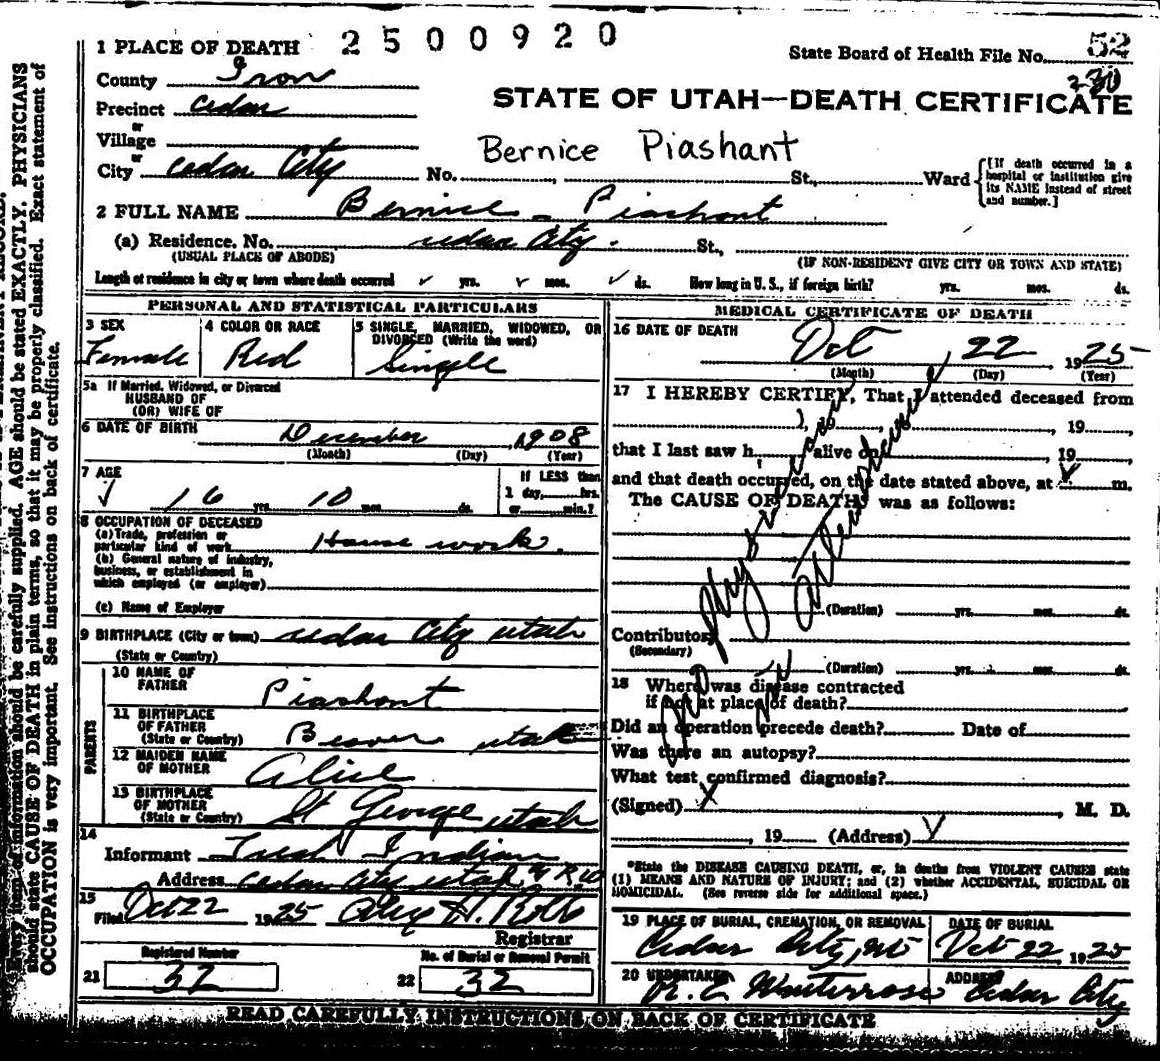 1 PLACE OF DEATH 2500920
State Board of Health File No. 52
230
County Iron
Precinct Cedar
STATE OF UTAH—DEATH CERTIFICATE
or
Village
Bernice Piashant
or
City Cedar City No. St., Ward
[If death occurred in a hospital or institution give its NAME instead of street and number.]
2 FULL NAME Bernice - Piashont
(a) Residence. No. Cedar City. St.,
(USUAL PLACE OF ABODE) (IF NON-RESIDENT GIVE CITY OR TOWN AND STATE)
Length of residence in city or town where death occurred yrs. mos. ds. How long in U. S., if foreign birth? yrs. mos. ds.
PERSONAL AND STATISTICAL PARTICULARS
3 SEX
Female
4 COLOR OR RACE
Red
5 SINGLE, MARRIED, WIDOWED, OR
DIVORCED (Write the word)
Single
5a If Married, Widowed, or Divorced
HUSBAND OF
(OR) WIFE OF
6 DATE OF BIRTH December, 1908
(Month) (Day) (Year)
7 AGE
16 yrs. 10 mos. ds.
If LESS than
1 day, hrs.
or min.?
8 OCCUPATION OF DECEASED
(a) Trade, profession or
particular kind of work House work.
(b) General nature of industry,
business, or establishment in
which employed (or employer)
(c) Name of Employer
9 BIRTHPLACE (City or town) Cedar City Utah
(State or Country)
PARENTS
10 NAME OF
FATHER Piashont
11 BIRTHPLACE
OF FATHER
(State or Country) Beaver Utah
12 MAIDEN NAME
OF MOTHER Alice
13 BIRTHPLACE
OF MOTHER
(State or Country) St George Utah
14
Informant Indian
Address Cedar City Utah,
15
Filed Oct 22 1925
Registrar
Registered Number
21 32
No. of Burial or Removal Permit
22 32
MEDICAL CERTIFICATE OF DEATH
16 DATE OF DEATH
Oct, 22 1925
(Month) (Day) (Year)
17 I HEREBY CERTIFY, That I attended deceased from
, 19
that I last saw h alive on , 19
and that death occurred, on the date stated above, at m.
The CAUSE OF DEATH* was as follows:
No physician in attendance
(Duration) yrs. mos. ds.
Contributory
(Secondary)
(Duration) yrs. mos. ds.
18 Where was disease contracted
if not at place of death?
Did an operation precede death? Date of
Was there an autopsy?
What test confirmed diagnosis?
(Signed) X , M. D.
, 19 (Address)
*State the DISEASE CAUSING DEATH, or, in deaths from VIOLENT CAUSES state
(1) MEANS AND NATURE OF INJURY; and (2) whether ACCIDENTAL, SUICIDAL OR
HOMICIDAL. (See reverse side for additional space.)
19 PLACE OF BURIAL, CREMATION, OR REMOVAL
Cedar City,
DATE OF BURIAL
Oct 22 1925
20 UNDERTAKER
R. E.
ADDRESS
Cedar City
READ CAREFULLY INSTRUCTIONS ON BACK OF CERTIFICATE
Every item of information should be carefully supplied. AGE should be stated EXACTLY. PHYSICIANS
should state CAUSE OF DEATH in plain terms, so that it may be properly classified. Exact statement of
OCCUPATION is very important. See instructions on back of certificate.